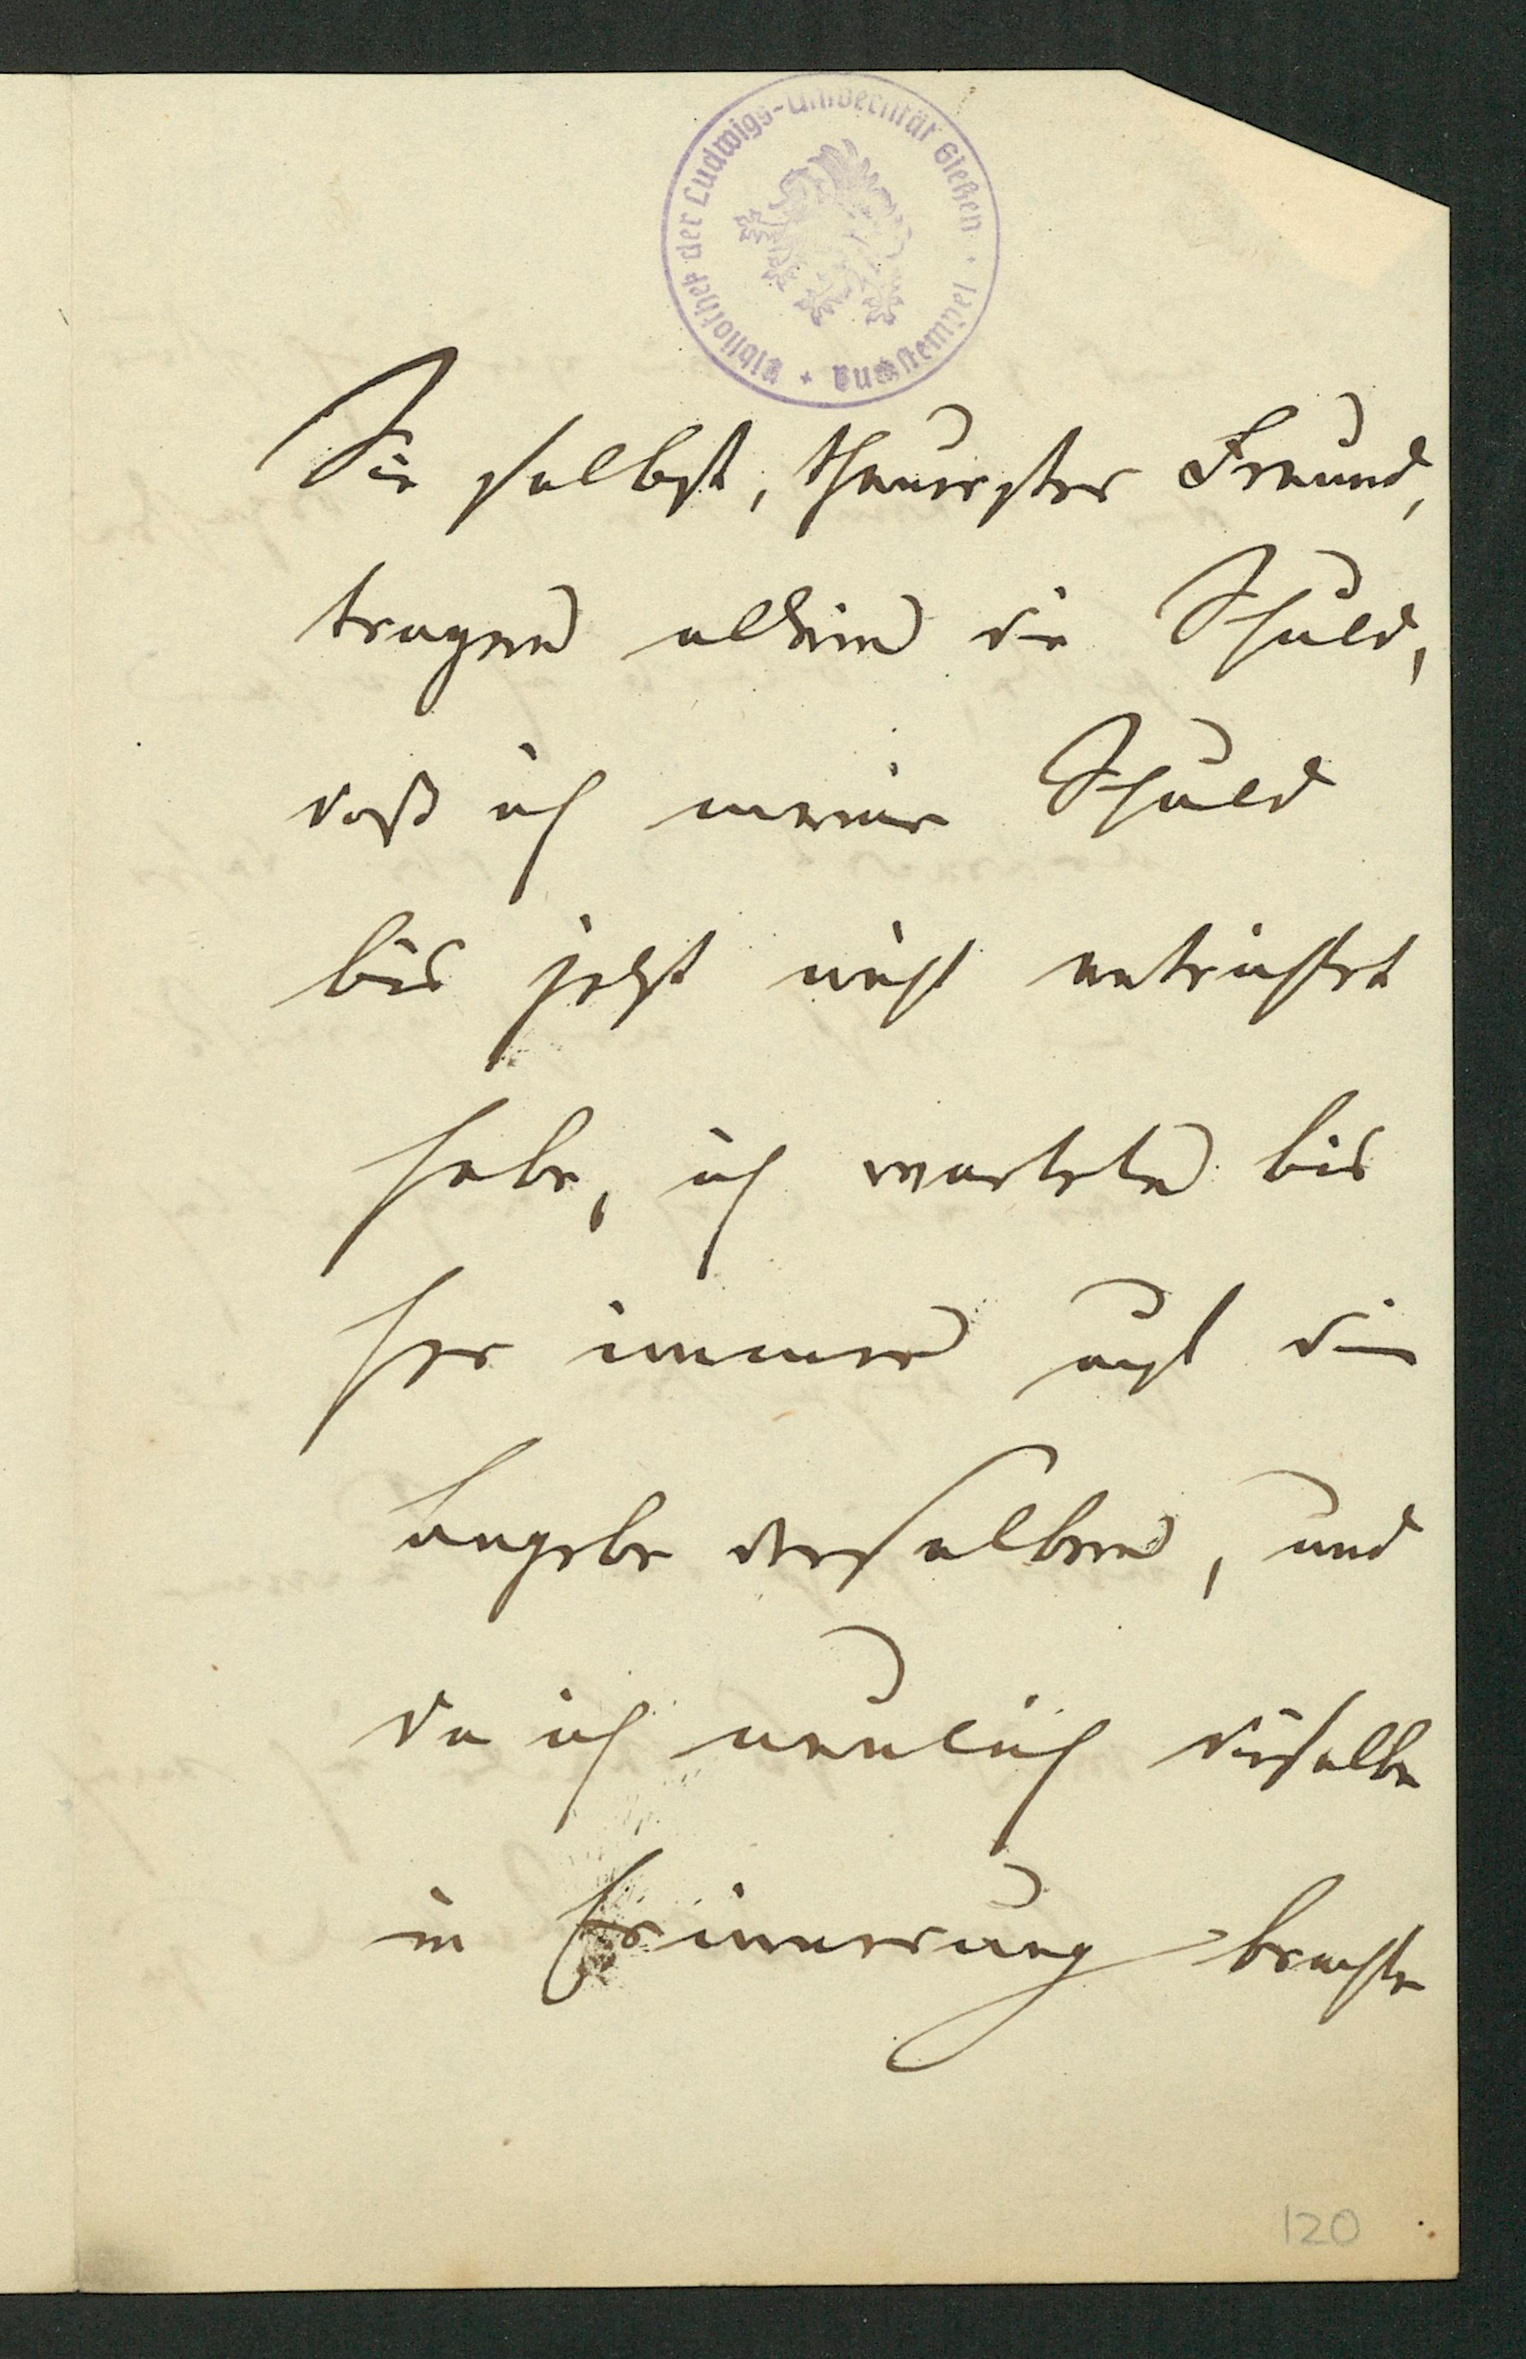 Bibliothek der Ludwigs-Universität Gießen
Buchstempel
Sie selbst, theuerster Freund,
tragen allein die Schuld,
daß ich meine Schuld
bis jetzt nicht entrichtet
habe, ich wartete bis
her immer auf die
Angabe derselben, und
da ich neulich dieselbe
in Erinnerung brachte
120